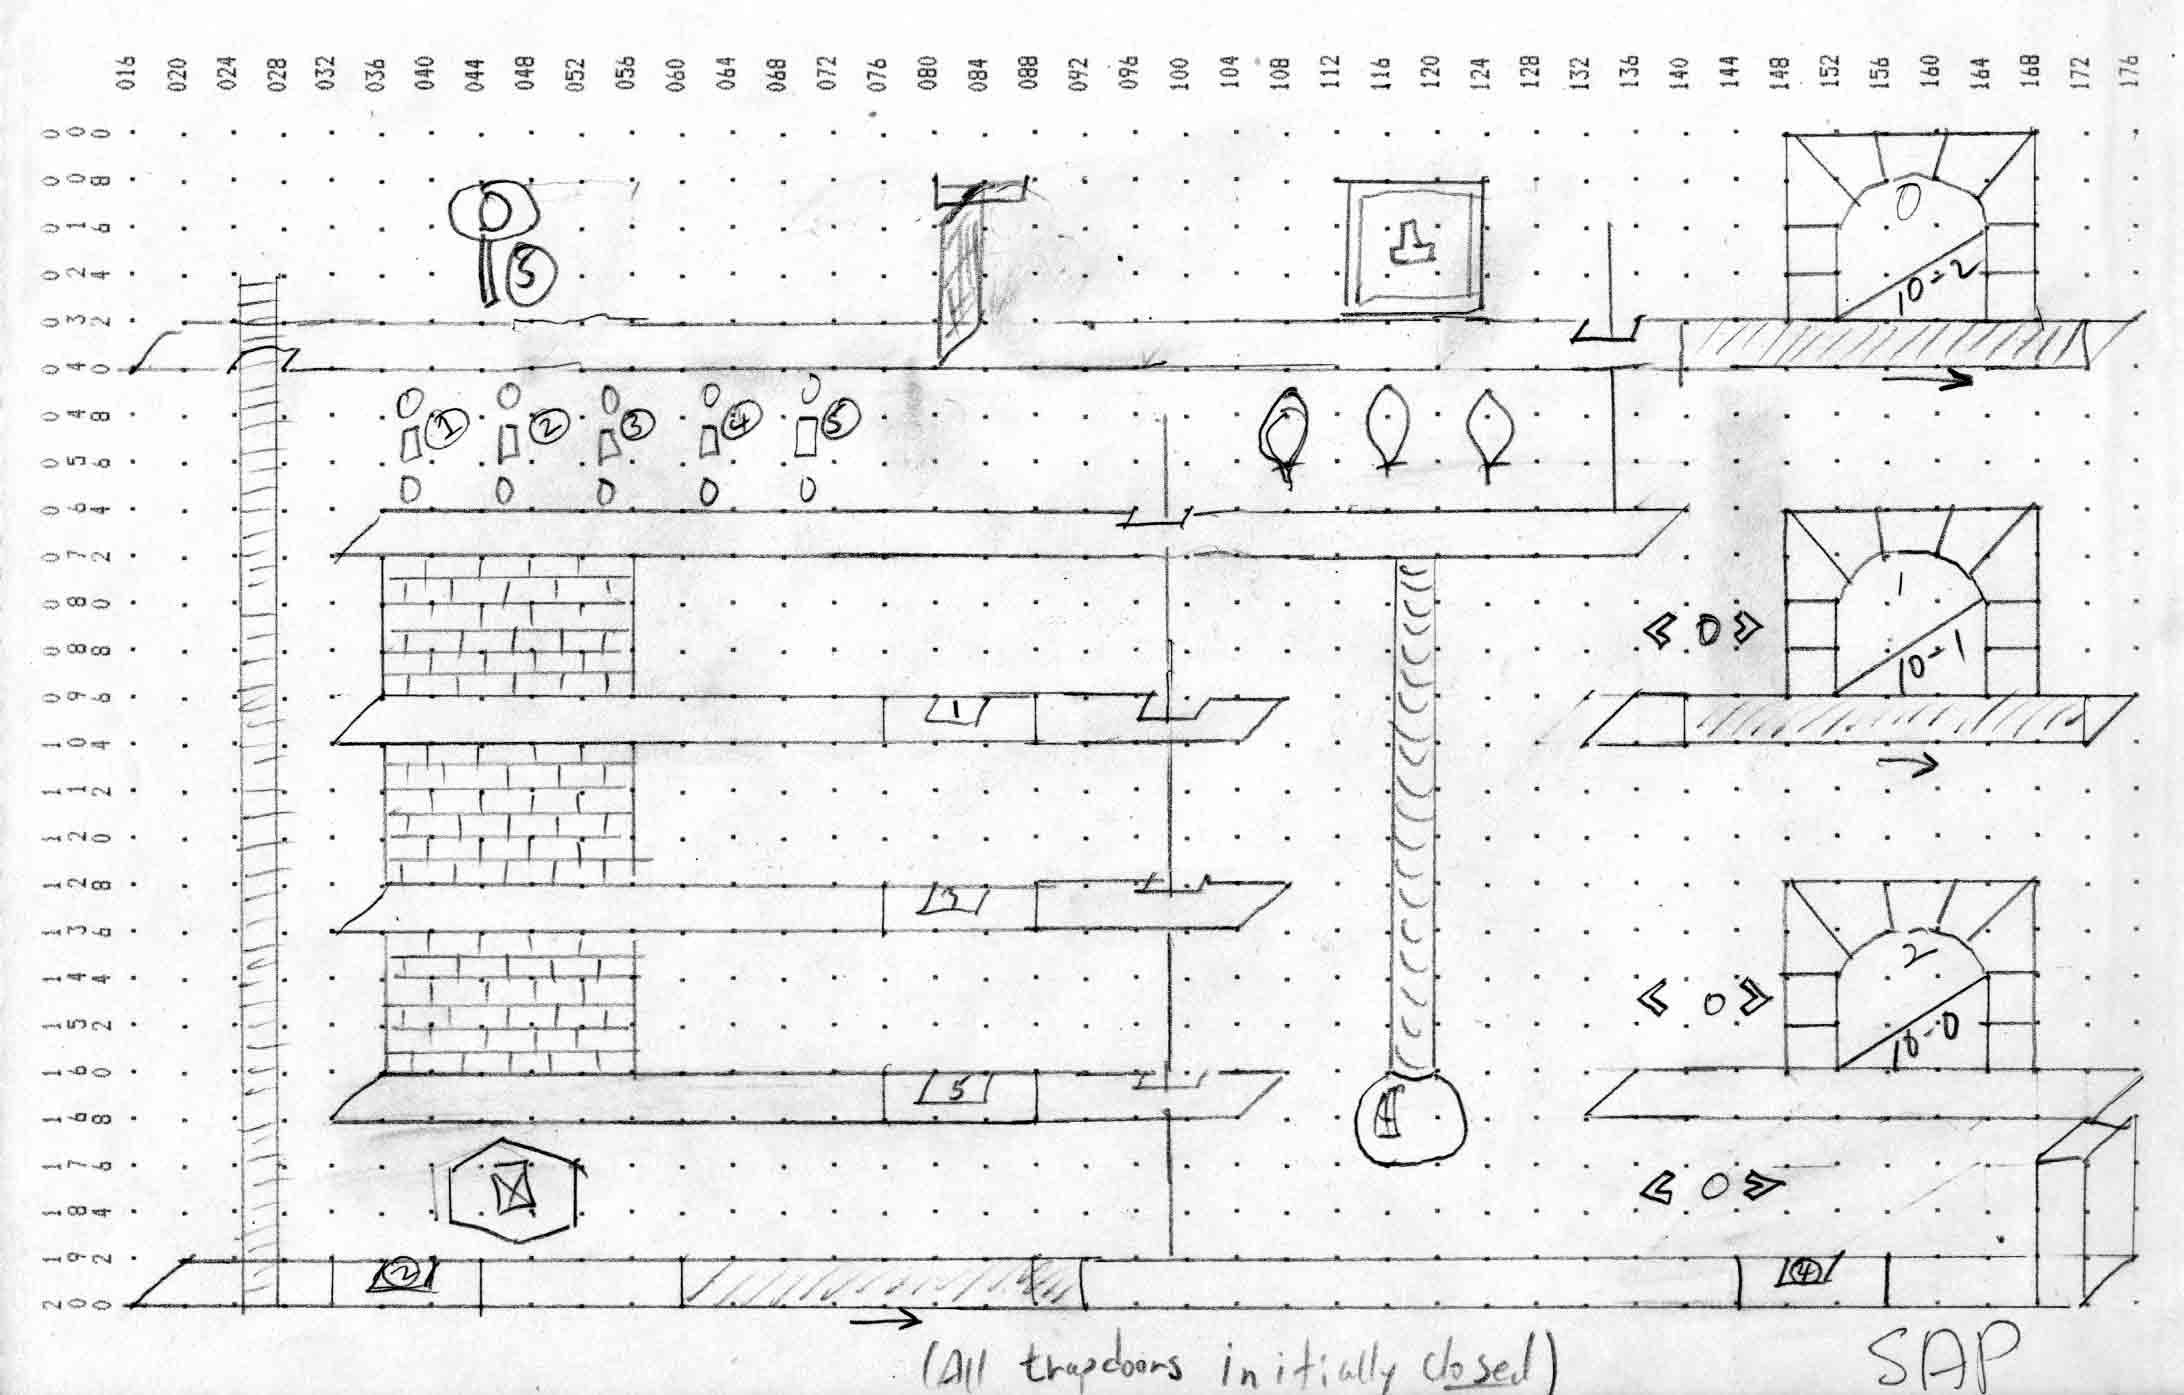 016 020 024 028 032 036 040 044 048 052 056 060 064 068 072 076 080 084 088 092 096 100 104 108 112 116 120 124 128 132 136 140 144 148 152 156 160 164 168 172 176
000
008
016 0
024 10-2
032
040
048 1 2 3 4 5
056
064
072
080 1
088 10-1
096 1
104
112
120
128 3
136 2
144
152 10-0
160 5
168
176
184
192 2 4
200
(All trapdoors initially closed)
SAP